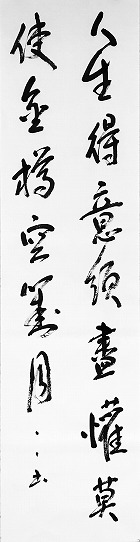 人生得意須盡懽莫
使金樽空對月